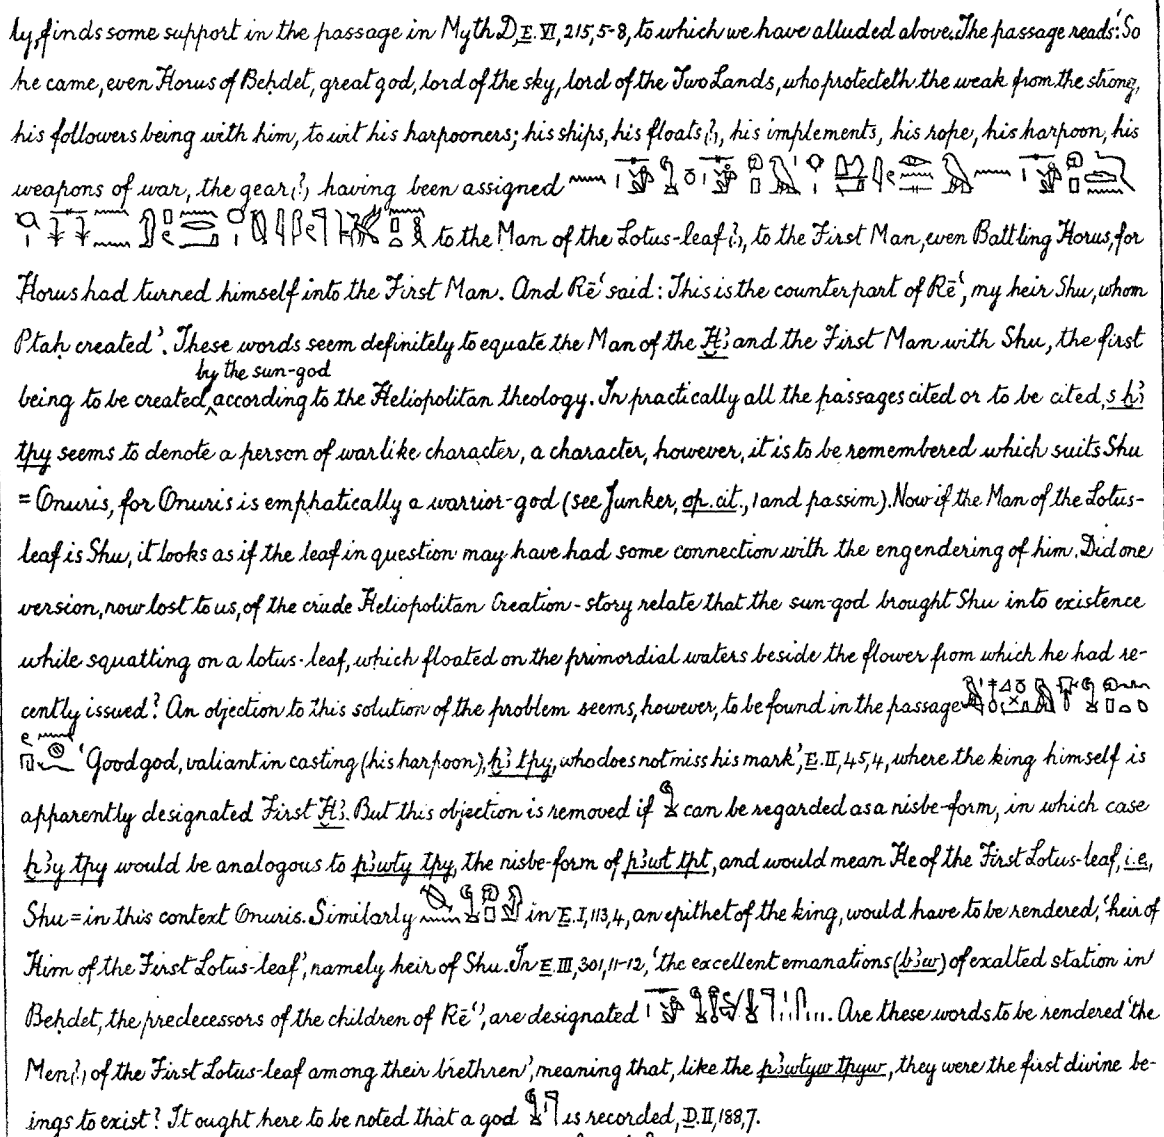 ly, finds some support in the passage in Myth D, E. VI, 215, 5-8, to which we have alluded above. The passage reads: ‘So
he came, even Horus of Beḥdet, great god, lord of the sky, lord of the Two Lands, who protecteth the weak from the strong,
his followers being with him, to wit his harpooners; his ships, his floats(?), his implements, his rope, his harpoon, his
weapons of war, the gear(?) having been assigned
to the Man of the Lotus-leaf(?), to the First Man, even Battling Horus, for
Horus had turned himself into the First Man. And Rēʿ said: This is the counterpart of Rēʿ, my heir Shu, whom
Ptaḥ created’. These words seem definitely to equate the Man of the Ḫꜣ and the First Man with Shu, the first
by the sun-god
being to be created ‸ according to the Heliopolitan theology. In practically all the passages cited or to be cited, s ḫꜣ
tpy seems to denote a person of warlike character, a character, however, it is to be remembered which suits Shu
= Onuris, for Onuris is emphatically a warrior-god (see Junker, op. cit., 1 and passim). Now if the Man of the Lotus-
leaf is Shu, it looks as if the leaf in question may have had some connection with the engendering of him. Did one
version, now lost to us, of the crude Heliopolitan Creation-story relate that the sun-god brought Shu into existence
while squatting on a lotus-leaf, which floated on the primordial waters beside the flower from which he had re-
cently issued? An objection to this solution of the problem seems, however, to be found in the passage
‘Good god, valiant in casting (his harpoon), ḫꜣ tpy, who does not miss his mark’, E. II, 45, 4, where the king himself is
apparently designated First Ḫꜣ. But this objection is removed if can be regarded as a nisbe-form, in which case
ḫꜣy tpy would be analogous to pꜣwty tpy, the nisbe-form of pꜣwt tpt, and would mean He of the First Lotus-leaf, i.e.,
Shu = in this context Onuris. Similarly in E. I, 113, 4, an epithet of the king, would have to be rendered, ‘heir of
Him of the First Lotus-leaf’, namely heir of Shu. In E. III, 301, 11-12, ‘the excellent emanations (bꜣw) of exalted station in
Beḥdet, the predecessors of the children of Rēʿ’, are designated . Are these words to be rendered ‘the
Men(?) of the First Lotus-leaf among their brethren’, meaning that, like the pꜣwtyw tpyw, they were the first divine be-
ings to exist? It ought here to be noted that a god is recorded, D. II, 188, 7.